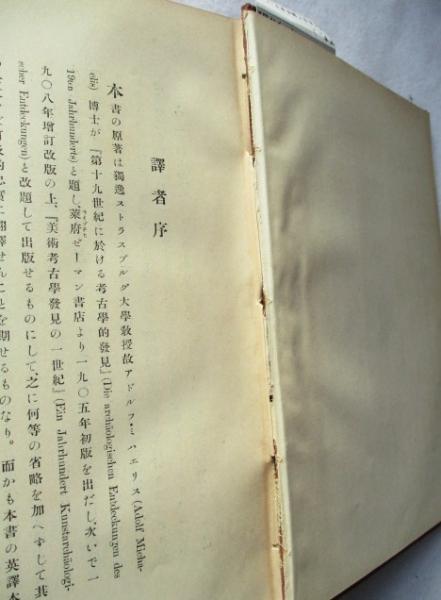 譯者序
本書の原著は獨逸ストラスブルグ大學敎授故アドルフ・ミハエリス(Adolf Micha-
elis)博士が『第十九世紀に於ける考古學的發見』(Die archäologischen Entdeckungen des
19en Jahrhunderts)と題し、萊府ゼーマン書店より一九〇五年初版を出だし、次いで一
九〇八年增訂改版の上、『美術考古學發見の一世紀』(Ein Jahrhundert Kunstarchäologi-
scher Entdeckungen)と改題して出版せるものにして、之に何等の省略を加へずして其
飜譯せんことを期せるものなり。而かも本書の英譯本